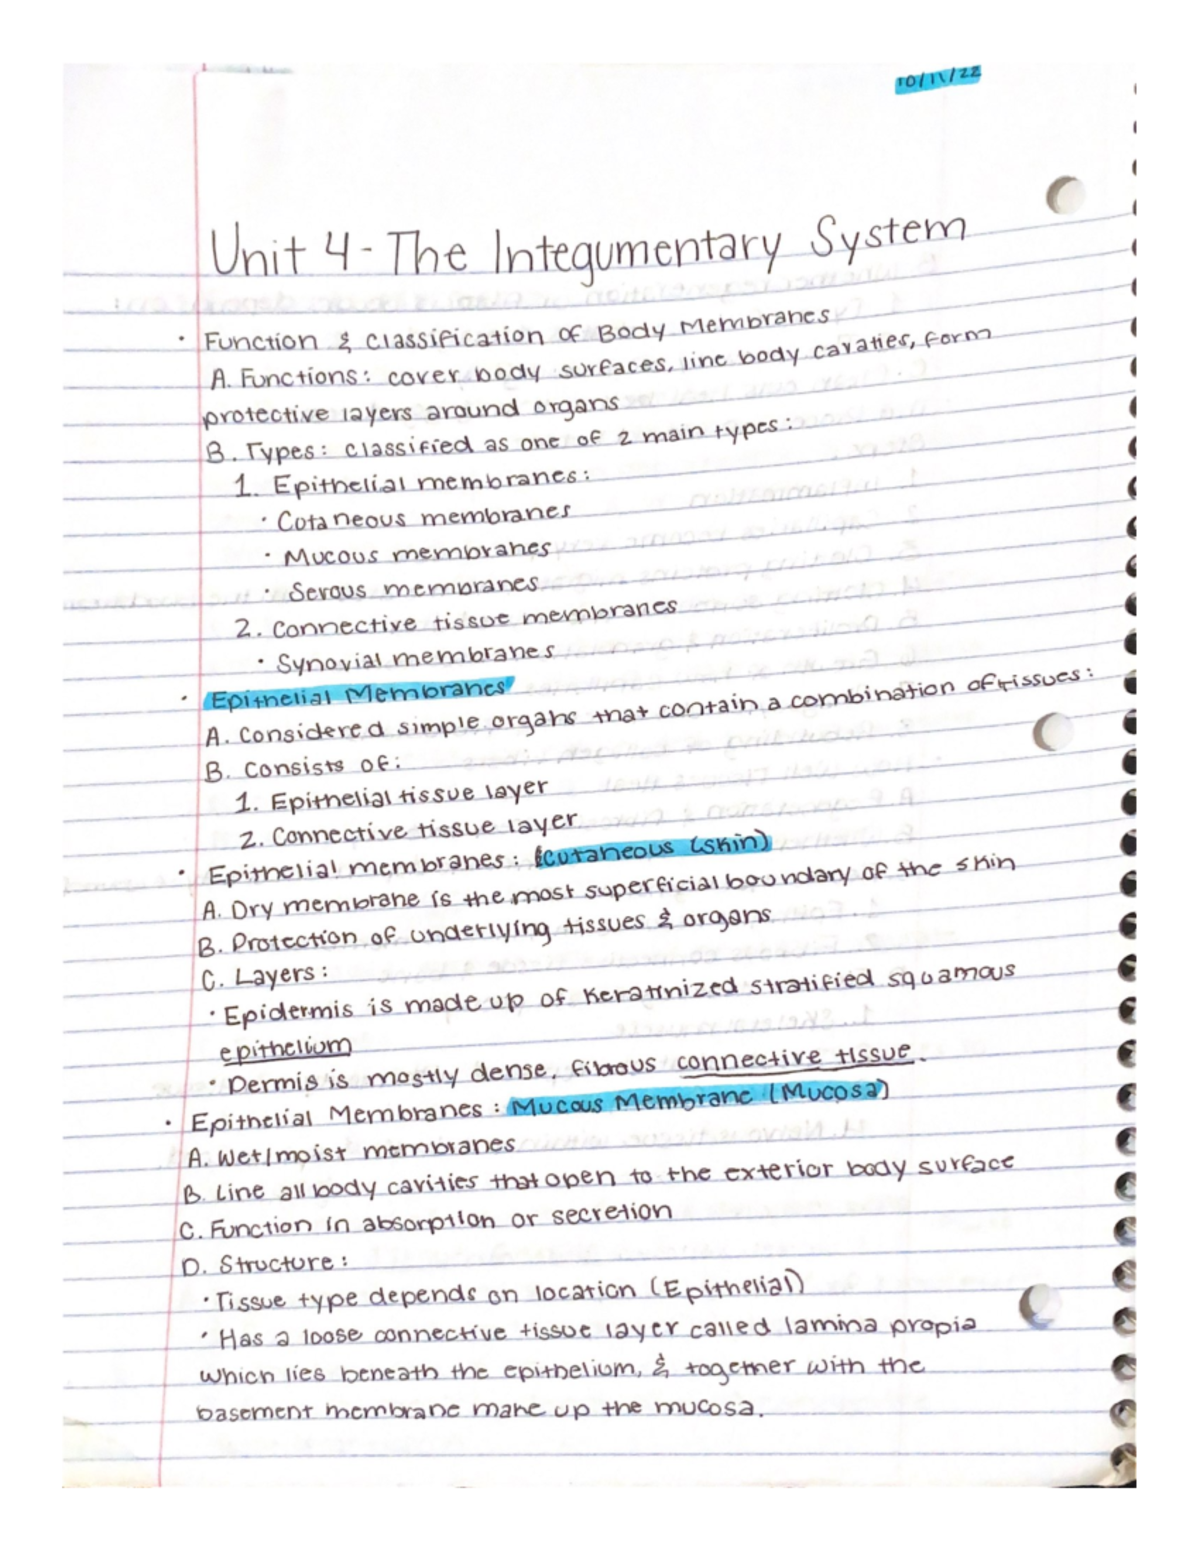 10/11/22
Unit 4 - The Integumentary System
• Function & Classification of Body Membranes
A. Functions: cover body surfaces, line body cavaties, form
protective layers around organs
B. Types: classified as one of 2 main types:
1. Epithelial membranes:
• Cotaneous membranes
• Mucous membranes
• Serous membranes
2. Connective tissue membranes
• Synovial membranes
• Epithelial Membranes
A. Considered simple organs that contain a combination of tissues:
B. Consists of:
1. Epithelial tissue layer
2. Connective tissue layer
• Epithelial membranes: Cutaneous (skin)
A. Dry membrane is the most superficial boundary of the skin
B. Protection of underlying tissues & organs
C. Layers:
• Epidermis is made up of Keratinized stratified squamous
epithelium
• Dermis is mostly dense, fibrous connective tissue.
• Epithelial Membranes: Mucous Membrane (Mucosa)
A. Wet/moist membranes
B. Line all body cavities that open to the exterior body surface
C. Function in absorption or secretion
D. Structure:
• Tissue type depends on location (Epithelial)
• Has a loose connective tissue layer called lamina propia
which lies beneath the epithelium, & together with the
basement membrane make up the mucosa.